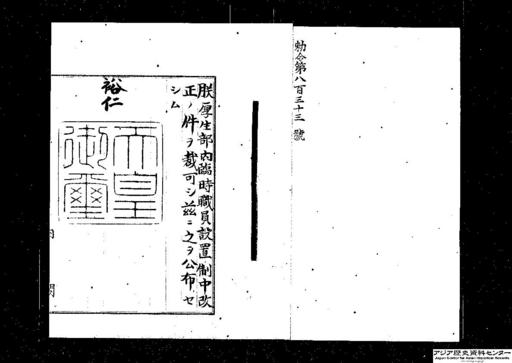 勅令第八百三十三號
朕厚生部內臨時職員設置制中改
正ノ件ヲ裁可シ茲ニ之ヲ公布セ
シム
裕仁
天皇
御璽
アジア歴史資料センター
Japan Center for Asian Historical Records